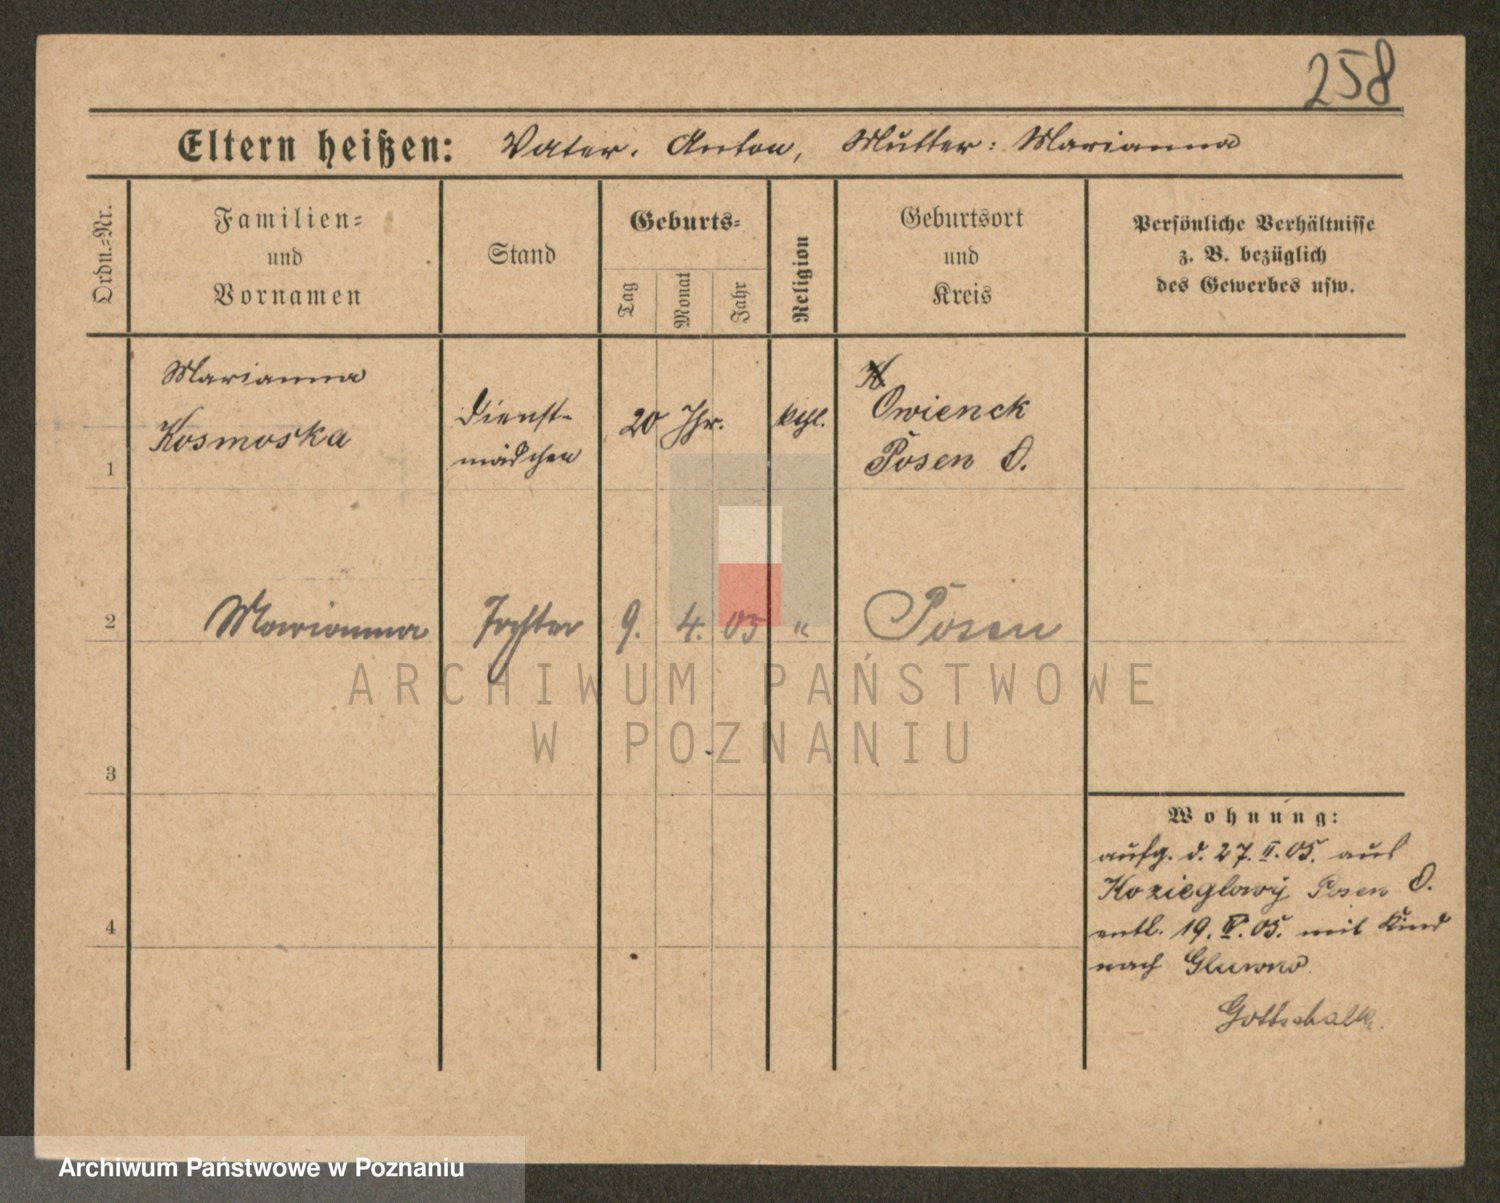 258
Eltern heißen: Vater. Anton, Mutter: Marianna
Ordn.-Nr.
Familien-
und
Vornamen
Stand
Geburts-
Tag
Monat
Jahr
Religion
Geburtsort
und
Kreis
Persönliche Verhältnisse
z. B. bezüglich
des Gewerbes usw.
1
Marianna
Kosmoska
Dienst-
mädchen
20 Jhr.
kthl.
Owienck
Posen O.
2
Marianna
Tochter
9. 4. 05
"
Posen
ARCHIWUM PAŃSTWOWE
W POZNANIU
3
4
Wohnung:
aufg. d. 27. II. 05. aus
Kozieglowy Posen O.
entl. 19. IV. 05. mit Kind
nach Gluwno
Gottschalk.
Archiwum Państwowe w Poznaniu